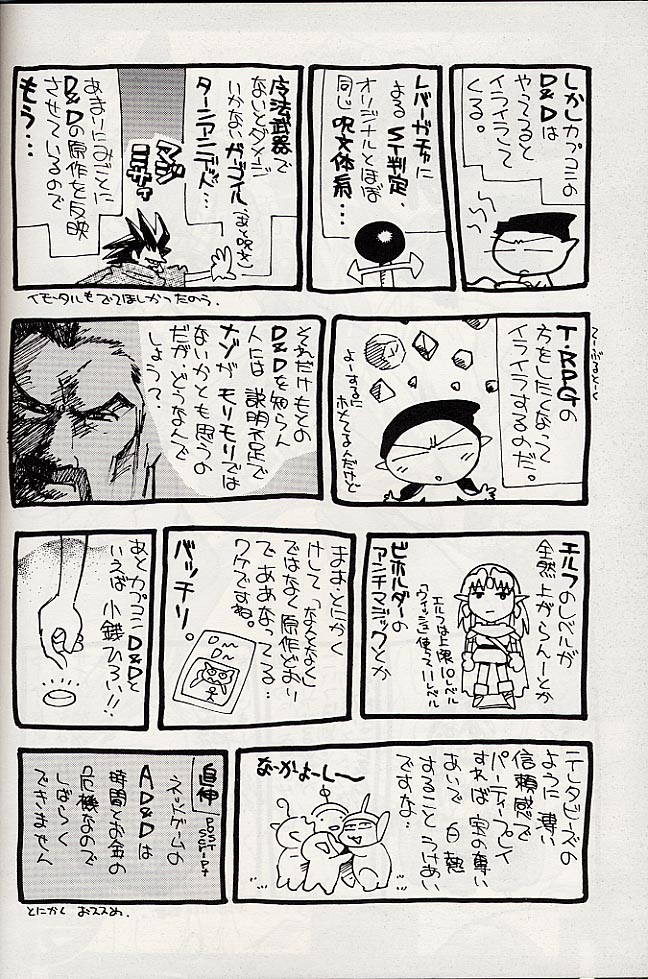 しかしカプコンの
D&Dは
やってると
イライラして
くる。
レバーガチャに
よるST判定、
オリジナルとほぼ
同じ呪文体系…
魔法武器で
ないとダメージ
いかないガーゴイル(まと呪文)
ターンアンデッド…
マジ
ミサイ
あまりにみごとに
D&Dの原作を反映
させているので
もう…
イモータルもでてほしかったのう。
てーぶるとーく
T・RPGの
方をしたくなって
イライラするのだ。
よーするに
ホメてるんだけど
それだけもとの
D&Dを知らん
人には説明不足で
ナゾがモリモリでは
ないかとも思うの
だが、どうなんで
しょうて。
エルフのレベルが
全然上がらんーとか
エルフは上限10レベル
「ウィッシュ」使って11レベル
ビホルダーの
アンチマジックとか
まあ、とにかく
けして「なんとなく」
ではなく原作どおり
であぁなってる…
ワケですね。
バッチリ。
D~
D~
あとカプコンD&Dと
いえば小銭ひろい!!
テレタビーズの
ように薄い
信頼感で
パーティープレイ
すれば実の奪い
あいで白熱
することうけあい
ですな…
なーかよーしー
追伸
POST
SCRIPT
ネットゲームの
AD&Dは
時間とお金の
危機なので
しばらく
できません
とにかくおススメ。